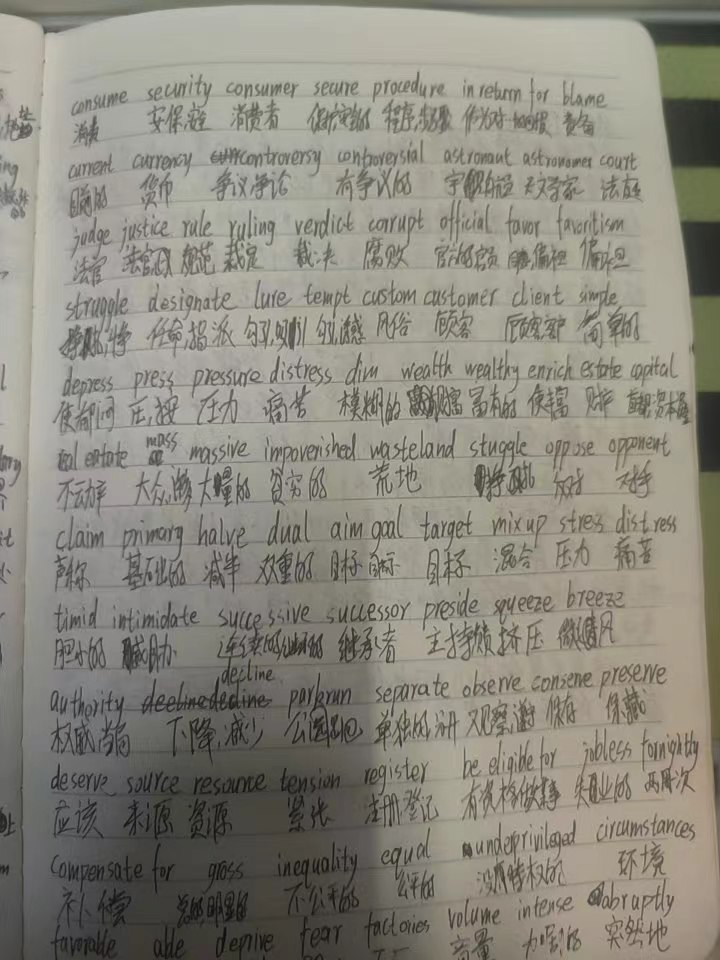 consume security consumer secure procedure in return for blame
消费 安保,安全 消费者 程序,步骤 作为对 责备
current currency controversy controversial astronaut astronomer court
货币 争议争论 有争议的 宇航员 天文学家 法庭
judge justice rule ruling verdict corrupt official favor favoritism
法官 规范 裁定 裁决 腐败 官方的官员 偏袒 偏袒
struggle designate lure tempt custom customer client simple
任命,指派 风俗 顾客 顾客客户 简单的
depress press pressure distress dim wealth wealthy enrich estate capital
使郁闷 压,按 压力 痛苦 模糊的 富有的 使富 财产
estate mass massive impoverished wasteland stuggle oppose opponent
不动产 大众 大量的 贫穷的 荒地 对手
claim primary halve dual aim goal target mix up stress distress
声称 基础的 减半 双重的 目标 目标 目标 混合 压力 痛苦
timid intimidate successive successor preside squeeze breeze
胆小的 威胁 连续的 继承者 主持 挤压 微风
decline
authority parkrun separate observe conserve preserve
权威,当局 下降,减少 公园跑 单独的,分开 观察,遵守 保存 保藏
deserve source resource tension register be eligible for jobless fornightly
应该 来源 资源 紧张 注册登记 有资格做某事 失业的 两周一次
compensate for gross inequality equal undeprivileged circumstances
补偿 不公平的 公平的 没有特权的 环境
favorable able deprive fear factories volume intense abraptly
音量 突然地